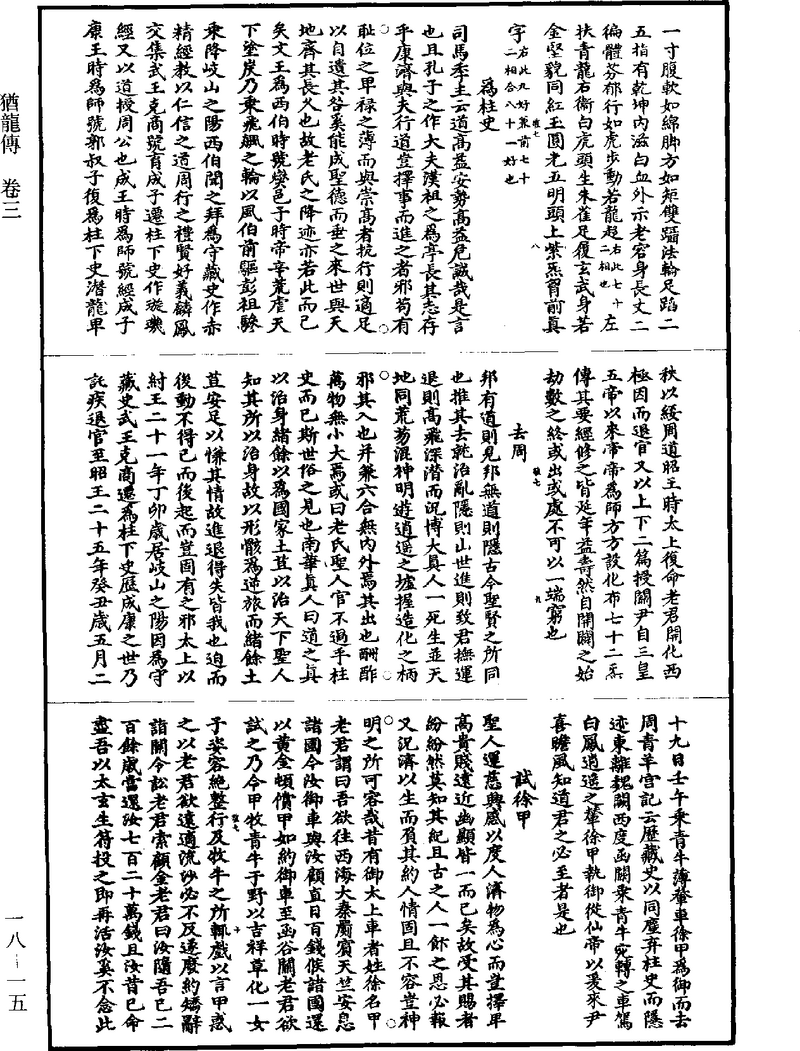 猶龍傳　卷三
一寸腹軟如綿脚方如矩雙躡法輪足蹈二
五指有乾坤内滋白血外示老容身長丈二
徧體芬郁行如虎步動若龍趨右此七十二相也左
扶青龍右衛白虎頭生朱雀足履玄武身若
金堅貌同紅玉圓光五明頭上紫炁胷前眞
字右此九好兼前七十二相合八十一好也
爲柱史
司馬季主云道高益安勢高益危誠哉是言
也且孔子之作大夫漢祖之爲亭長其志存
乎康濟與夫行道豈擇事而進之者邪苟有
耻位之卑禄之薄而與崇高者抗行則適足
以自遺其咎奚能成聖德而垂之來世與天
地齊其長久也故老氏之降迹亦若此而已
矣文王爲西伯時號燮邑子時帝辛荒虐天
下塗炭乃乘飛飈之輪以風伯前驅彭祖驂
乘降岐山之陽西伯聞之拜爲守藏史作赤
精經教以仁信之道周行之禮賢好義麟鳳
交集武王克商號育成子遷柱下史作璇璣
經又以道授周公也成王時爲師號經成子
康王時爲師號郭叔子復爲柱下史潛龍卑
秩以綏周道昭王時太上復命老君開化西
極因而退官又以上下二篇授關尹自三皇
五帝以來帝帝爲師方方設化布七十二炁
傳其要經修之皆延年益壽然自開闢之始
劫數之終或出或處不可以一端窮也
去周
邦有道則見邦無道則隱古今聖賢之所同
也推其去就治亂隱則山世進則致君撫運
退則高飛深潛而況博大眞人一死生並天
地同荒蕩混神明遊逍遥之墟握造化之柄
邪其入也并兼六合無内外焉其出也酬酢
萬物無小大焉或曰老氏聖人官不過乎柱
史而已斯世俗之見也南華眞人曰道之眞
以治身緒餘以爲國家土苴以治天下聖人
知其所以治身故以形骸爲逆旅而緒餘土
苴安足以慊其情故進退得失皆我也迫而
後動不得已而後起而豈固有之邪太上以
紂王二十一年丁卯歲居岐山之陽因爲守
藏史武王克商遷爲柱下史歷成康之世乃
託疾退官至昭王二十五年癸丑歲五月二
十九日壬午乘青牛薄輂車徐甲爲御而去
周青羊宫記云歷藏史以同塵弃柱史而隱
迹東離魏關西度函關乘青牛宛轉之車駕
白鳳逍遥之輦徐甲執御從仙帝以爰來尹
喜瞻風知道君之必至者是也
試徐甲
聖人運慈興感以度人濟物爲心而豈擇卑
高貴賤遠近幽顯皆一而已矣故受其賜者
紛紛然莫知其紀且古之人一飰之恩必報
又況濟以生而負其約人情固且不容豈神
明之所可容哉昔有御太上車者姓徐名甲
老君謂曰吾欲往西海大秦罽賓天竺安息
諸國令汝御車與汝顧直日百錢候諸國還
以黃金頓償甲如約御車至函谷關老君欲
試之乃令甲牧青牛于野以吉祥草化一女
子姿容絶整行及牧牛之所輒戲以言甲惑
之以老君欲遠適流沙必不反遂廢約矯辭
詣關令訟老君索顧金老君曰汝隨吾已二
百餘歲當還汝七百二十萬錢且汝昔已命
盡吾以太玄生符投之即再活汝奚不念此
一八—一五